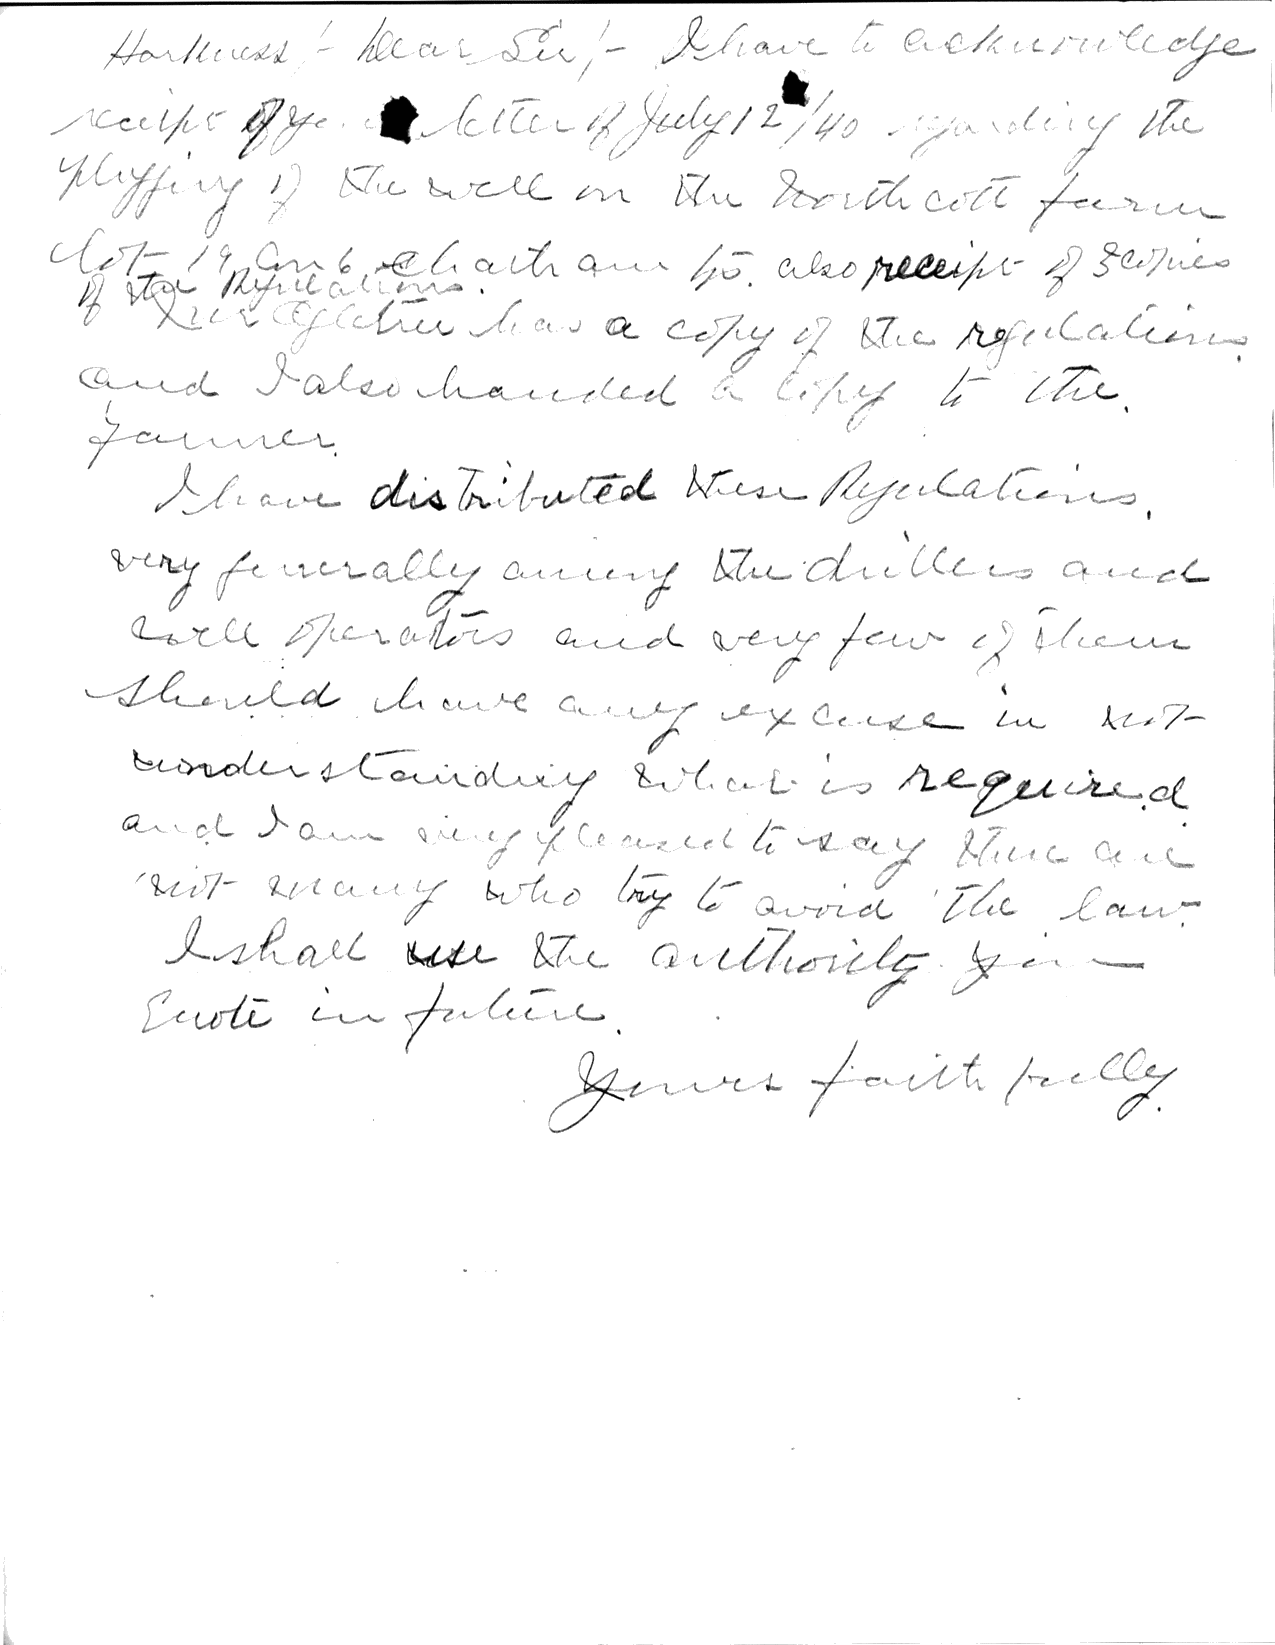 Harkness :- Dear Sir :- I have to acknowledge
receipt of your letter of July 12/40 regarding the
plugging of the well on the Northcott farm
Lot 19 Con 6 Chatham Tp. also receipt of copies
of the Regulations.
has a copy of the regulations.
and I also handed a copy to the.
farmer.
I have distributed these Regulations.
very generally among the drillers and
well operators and very few of them
should have any excuse in not
understanding what is required
and I am very pleased to say there are
not many who try to avoid the law.
I shall use the authority you
quote in future.
Yours faithfully.